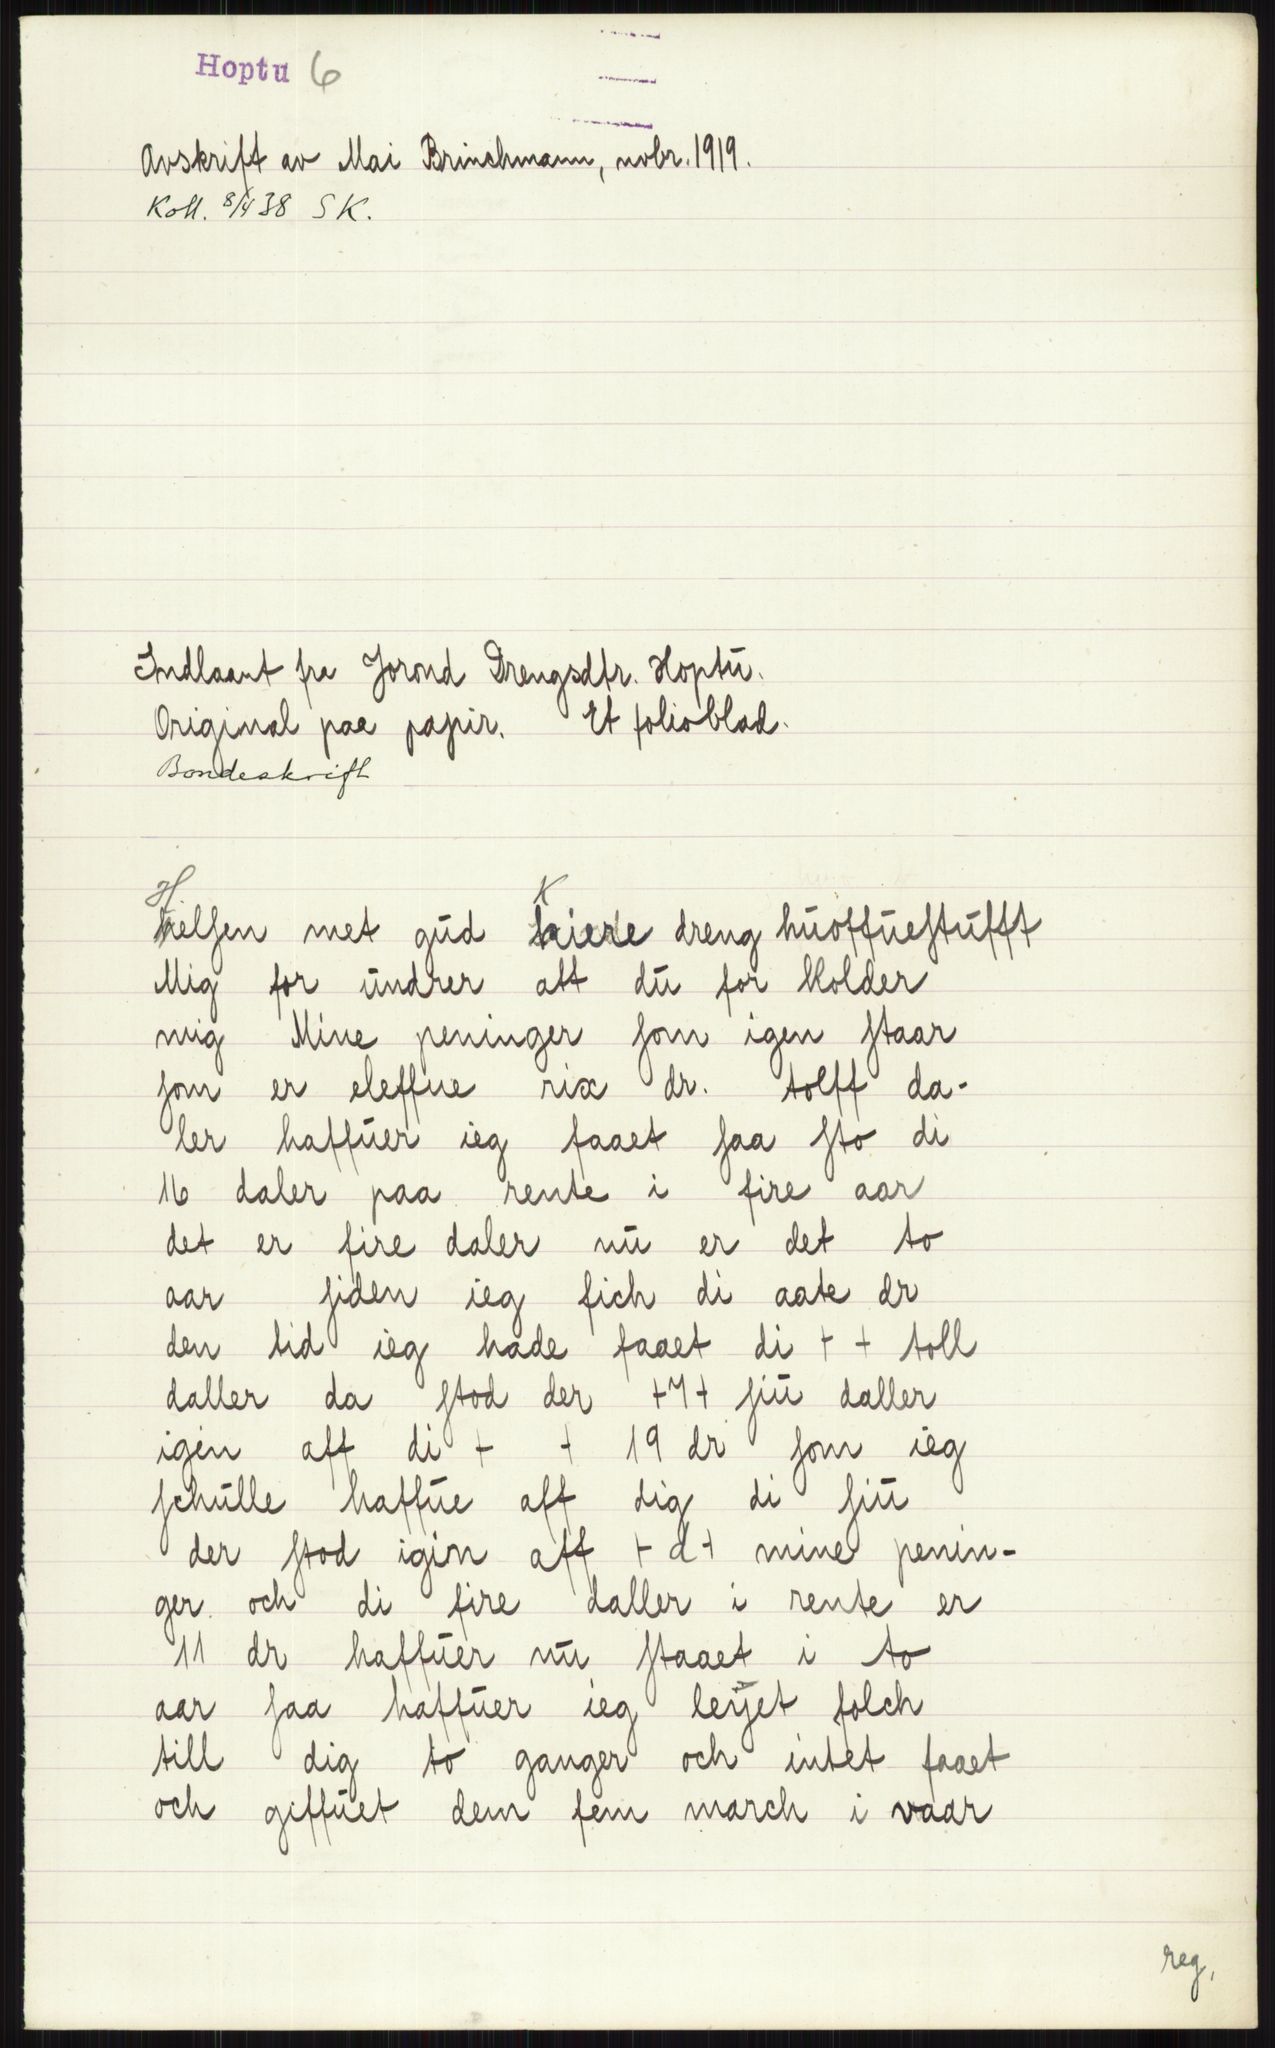 Hoptu 6
Avskrift av Mai Brinchmann, novbr. 1919.
Koll. 8/4 38 S K.
Indlaant fra Jorond Drengsdtr. Hoptu.
Original paa papir. Et folioblad.
Bondeskrift
Helsen met gud Kiere dreng huoffuestufft
Mig for undrer att du for holder
mig Mine peninger som igen staar
som er eleffue rix dr. tolff da-
ler haffuer ieg faaet saa sto di
16 daler paa rente i fire aar
det er fire daler nu er det to
aar siden ieg fich di aate dr
den tid ieg hade faaet di + + toll
daller da stod der +7+ siu daller
igen aff di + + 19 dr som ieg
schulle haffue aff dig di siu
der stod igin aff +d+ mine penin-
ger och di fire daller i rente er
11 dr haffuer nu staaet i to
aar saa haffuer ieg leÿet folch
till dig to ganger och intet faaet
och giffuet dem fem march i vaar
reg.